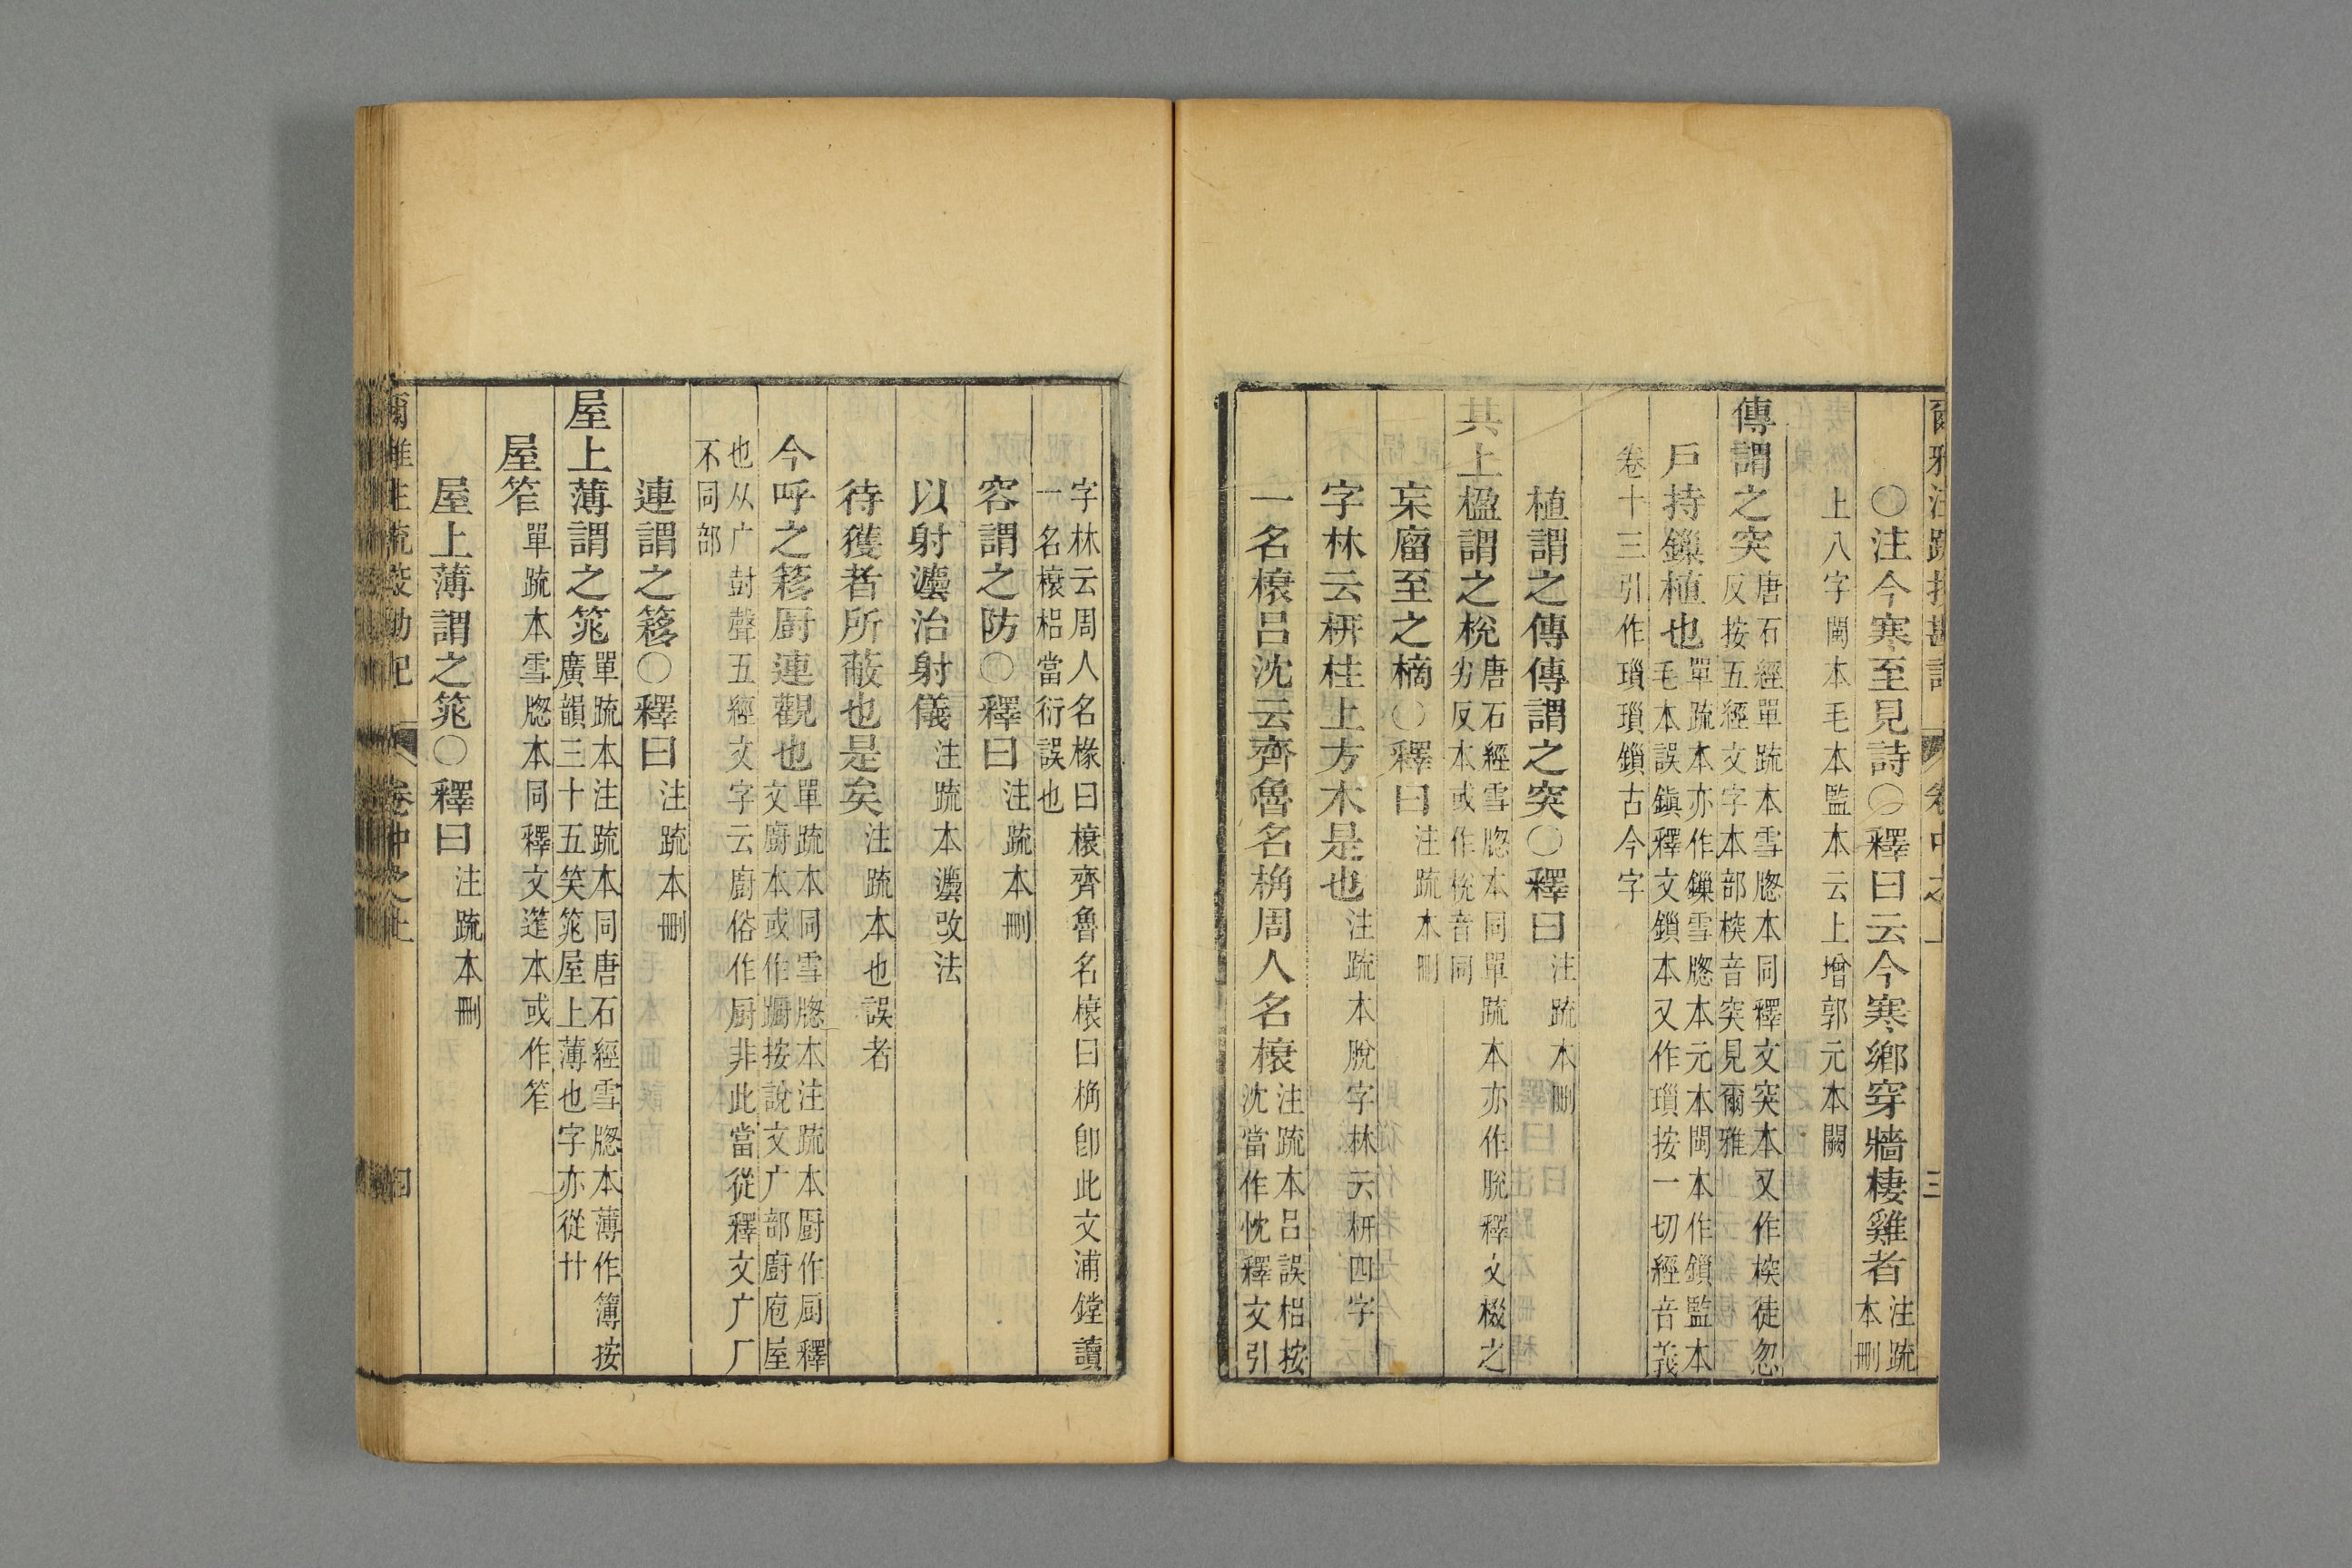 爾雅注疏挍勘記 卷中之上 三
○注今寒至見詩○釋曰云今寒鄉穿牆棲雞者注疏本刪
上八字閩本毛本監本云上增郭元本闕
傳謂之突唐石經單疏本雪牕本同釋文突本又作㮏徒忽反按五經文字本部㮏音突見爾雅
戶持鏁植也單疏本亦作鏁雪牕本元本閩本作鎖監本毛本誤鎭釋文鎖本又作瑣按一切經音義
卷十三引作瑣瑣鎖古今字
植謂之傳傳謂之突○釋曰注疏本刪
其上楹謂之梲唐石經雪牕本同單疏本亦作脫釋文棳之劣反本或作梲音同
杗廇至之樀○釋曰注疏本刪
字林云枅柱上方木是也注疏本脫字林云枅四字
一名榱吕沈云齊魯名桷周人名榱注疏本呂誤梠按沈當作忱釋文引
字林云周人名椽曰榱齊魯名榱曰桷卽此文浦鏜讀一名榱梠當衍誤也
容謂之防○釋曰注疏本刪
以射灋治射儀注疏本灋改法
待獲者所蔽也是矣注疏本也誤者
今呼之簃厨連觀也單疏本同雪牕本注疏本厨作廚釋文廚本或作躕按說文广部廚庖屋
也从广尌聲五經文字云廚俗作厨非此當從釋文广厂不同部
連謂之簃○釋曰注疏本刪
屋上薄謂之筄單疏本注疏本同唐石經雪牕本薄作簿按廣韻三十五笑筄屋上薄也字亦從廾
屋笮單疏本雪牕本同釋文筰本或作笮
屋上薄謂之筄○釋曰注疏本刪
爾雅注疏挍勘記 卷中之上 四